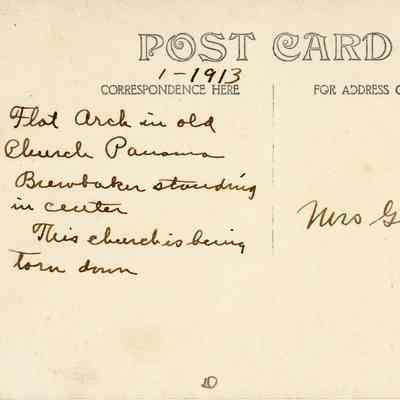 POST CARD
1-1913
CORRESPONDENCE HERE
FOR ADDRESS
Flat Arch in old
Church Panama
Brewbaker standing
in center
This church is being
torn down
Mrs G